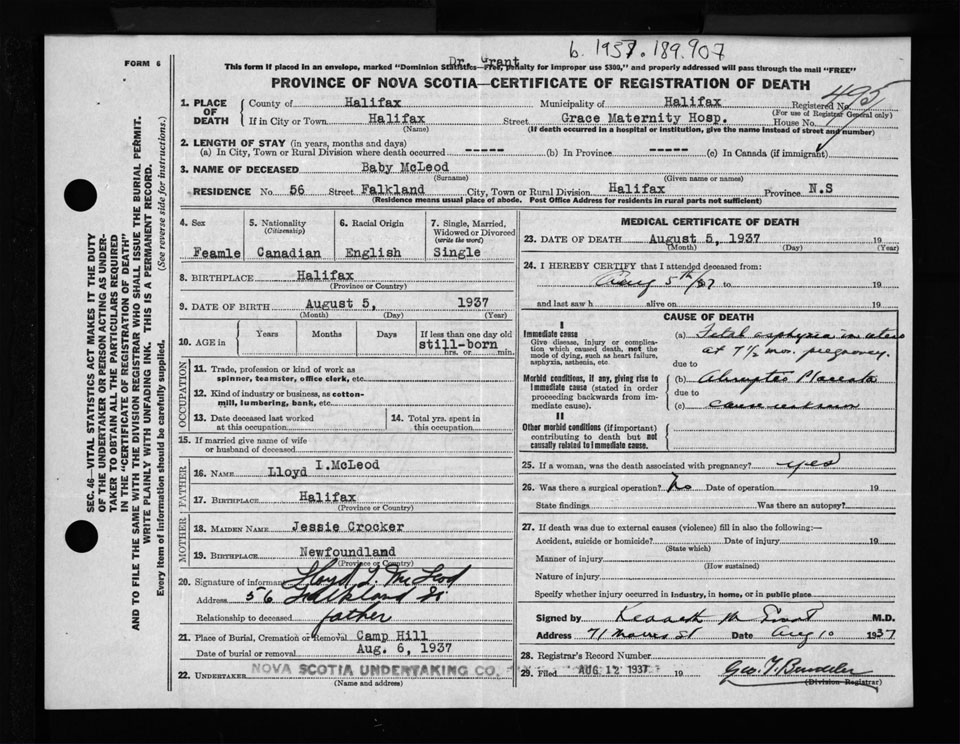 b. 1937. 189.907
Dr. Grant
FORM 6
This form if placed in an envelope, marked "Dominion Statistics—Free, penalty for improper use $300," and properly addressed will pass through the mail "FREE"
PROVINCE OF NOVA SCOTIA—CERTIFICATE OF REGISTRATION OF DEATH
495
1. PLACE OF DEATH
County of Halifax Municipality of Halifax Registered No.
(For use of Registrar General only)
If in City or Town Halifax Street Grace Maternity Hosp. House No.
(Name) (If death occurred in a hospital or institution, give the name instead of street and number)
2. LENGTH OF STAY (in years, months and days)
(a) In City, Town or Rural Division where death occurred ----- (b) In Province ----- (c) In Canada (if immigrant)
3. NAME OF DECEASED Baby McLeod
(Surname) (Given name or names)
RESIDENCE No. 56 Street Falkland City, Town or Rural Division Halifax Province N.S
(Residence means usual place of abode. Post Office Address for residents in rural parts not sufficient)
4. Sex 5. Nationality 6. Racial Origin 7. Single, Married, Widowed or Divorced
(Citizenship) (write the word)
Feamle Canadian English Single
8. BIRTHPLACE Halifax
(Province or Country)
9. DATE OF BIRTH August 5, 1937
(Month) (Day) (Year)
10. AGE in Years Months Days If less than one day old
still-born
hrs. or min.
OCCUPATION
11. Trade, profession or kind of work as spinner, teamster, office clerk, etc.
12. Kind of industry or business, as cotton-mill, lumbering, bank, etc.
13. Date deceased last worked at this occupation
14. Total yrs. spent in this occupation
15. If married give name of wife or husband of deceased
FATHER
16. NAME Lloyd I.McLeod
17. BIRTHPLACE Halifax
(Province or Country)
MOTHER
18. MAIDEN NAME Jessie Crocker
19. BIRTHPLACE Newfoundland
(Province or Country)
20. Signature of informant Lloyd I. McLeod
Address 56 Falkland St
Relationship to deceased father
21. Place of Burial, Cremation or Removal Camp Hill
Date of burial or removal Aug. 6, 1937
22. UNDERTAKER NOVA SCOTIA UNDERTAKING CO.
(Name and address)
MEDICAL CERTIFICATE OF DEATH
23. DATE OF DEATH August 5, 1937 19
(Month) (Day) (Year)
24. I HEREBY CERTIFY that I attended deceased from:
Aug 5th/37 to 19
and last saw h alive on 19
CAUSE OF DEATH
I
Immediate cause
Give disease, injury or complication which caused death, not the mode of dying, such as heart failure, asphyxia, asthenia, etc.
(a) Fetal asphyxia in utero
at 7 1/2 mo. pregnancy.
due to
Morbid conditions, if any, giving rise to immediate cause (stated in order proceeding backwards from immediate cause).
(b) Abruptio Placenta
due to
(c) cause unknown
II
Other morbid conditions (if important) contributing to death but not causally related to immediate cause.
25. If a woman, was the death associated with pregnancy? yes
26. Was there a surgical operation? No Date of operation 19
State findings Was there an autopsy?
27. If death was due to external causes (violence) fill in also the following:—
Accident, suicide or homicide? Date of injury 19
(State which)
Manner of injury
(How sustained)
Nature of injury
Specify whether injury occurred in industry, in home, or in public place
Signed by Kenneth M Grant M.D.
Address 71 Morris St Date Aug 10 1937
28. Registrar's Record Number
29. Filed AUG 12 1937 19
(Division Registrar)
SEC. 46—VITAL STATISTICS ACT MAKES IT THE DUTY
OF THE UNDERTAKER OR PERSON ACTING AS UNDER-
TAKER TO OBTAIN ALL THE PARTICULARS REQUIRED
IN THE "CERTIFICATE OF REGISTRATION OF DEATH"
AND TO FILE THE SAME WITH THE DIVISION REGISTRAR WHO SHALL ISSUE THE BURIAL PERMIT.
WRITE PLAINLY WITH UNFADING INK. THIS IS A PERMANENT RECORD.
Every item of information should be carefully supplied. (See reverse side for instructions.)